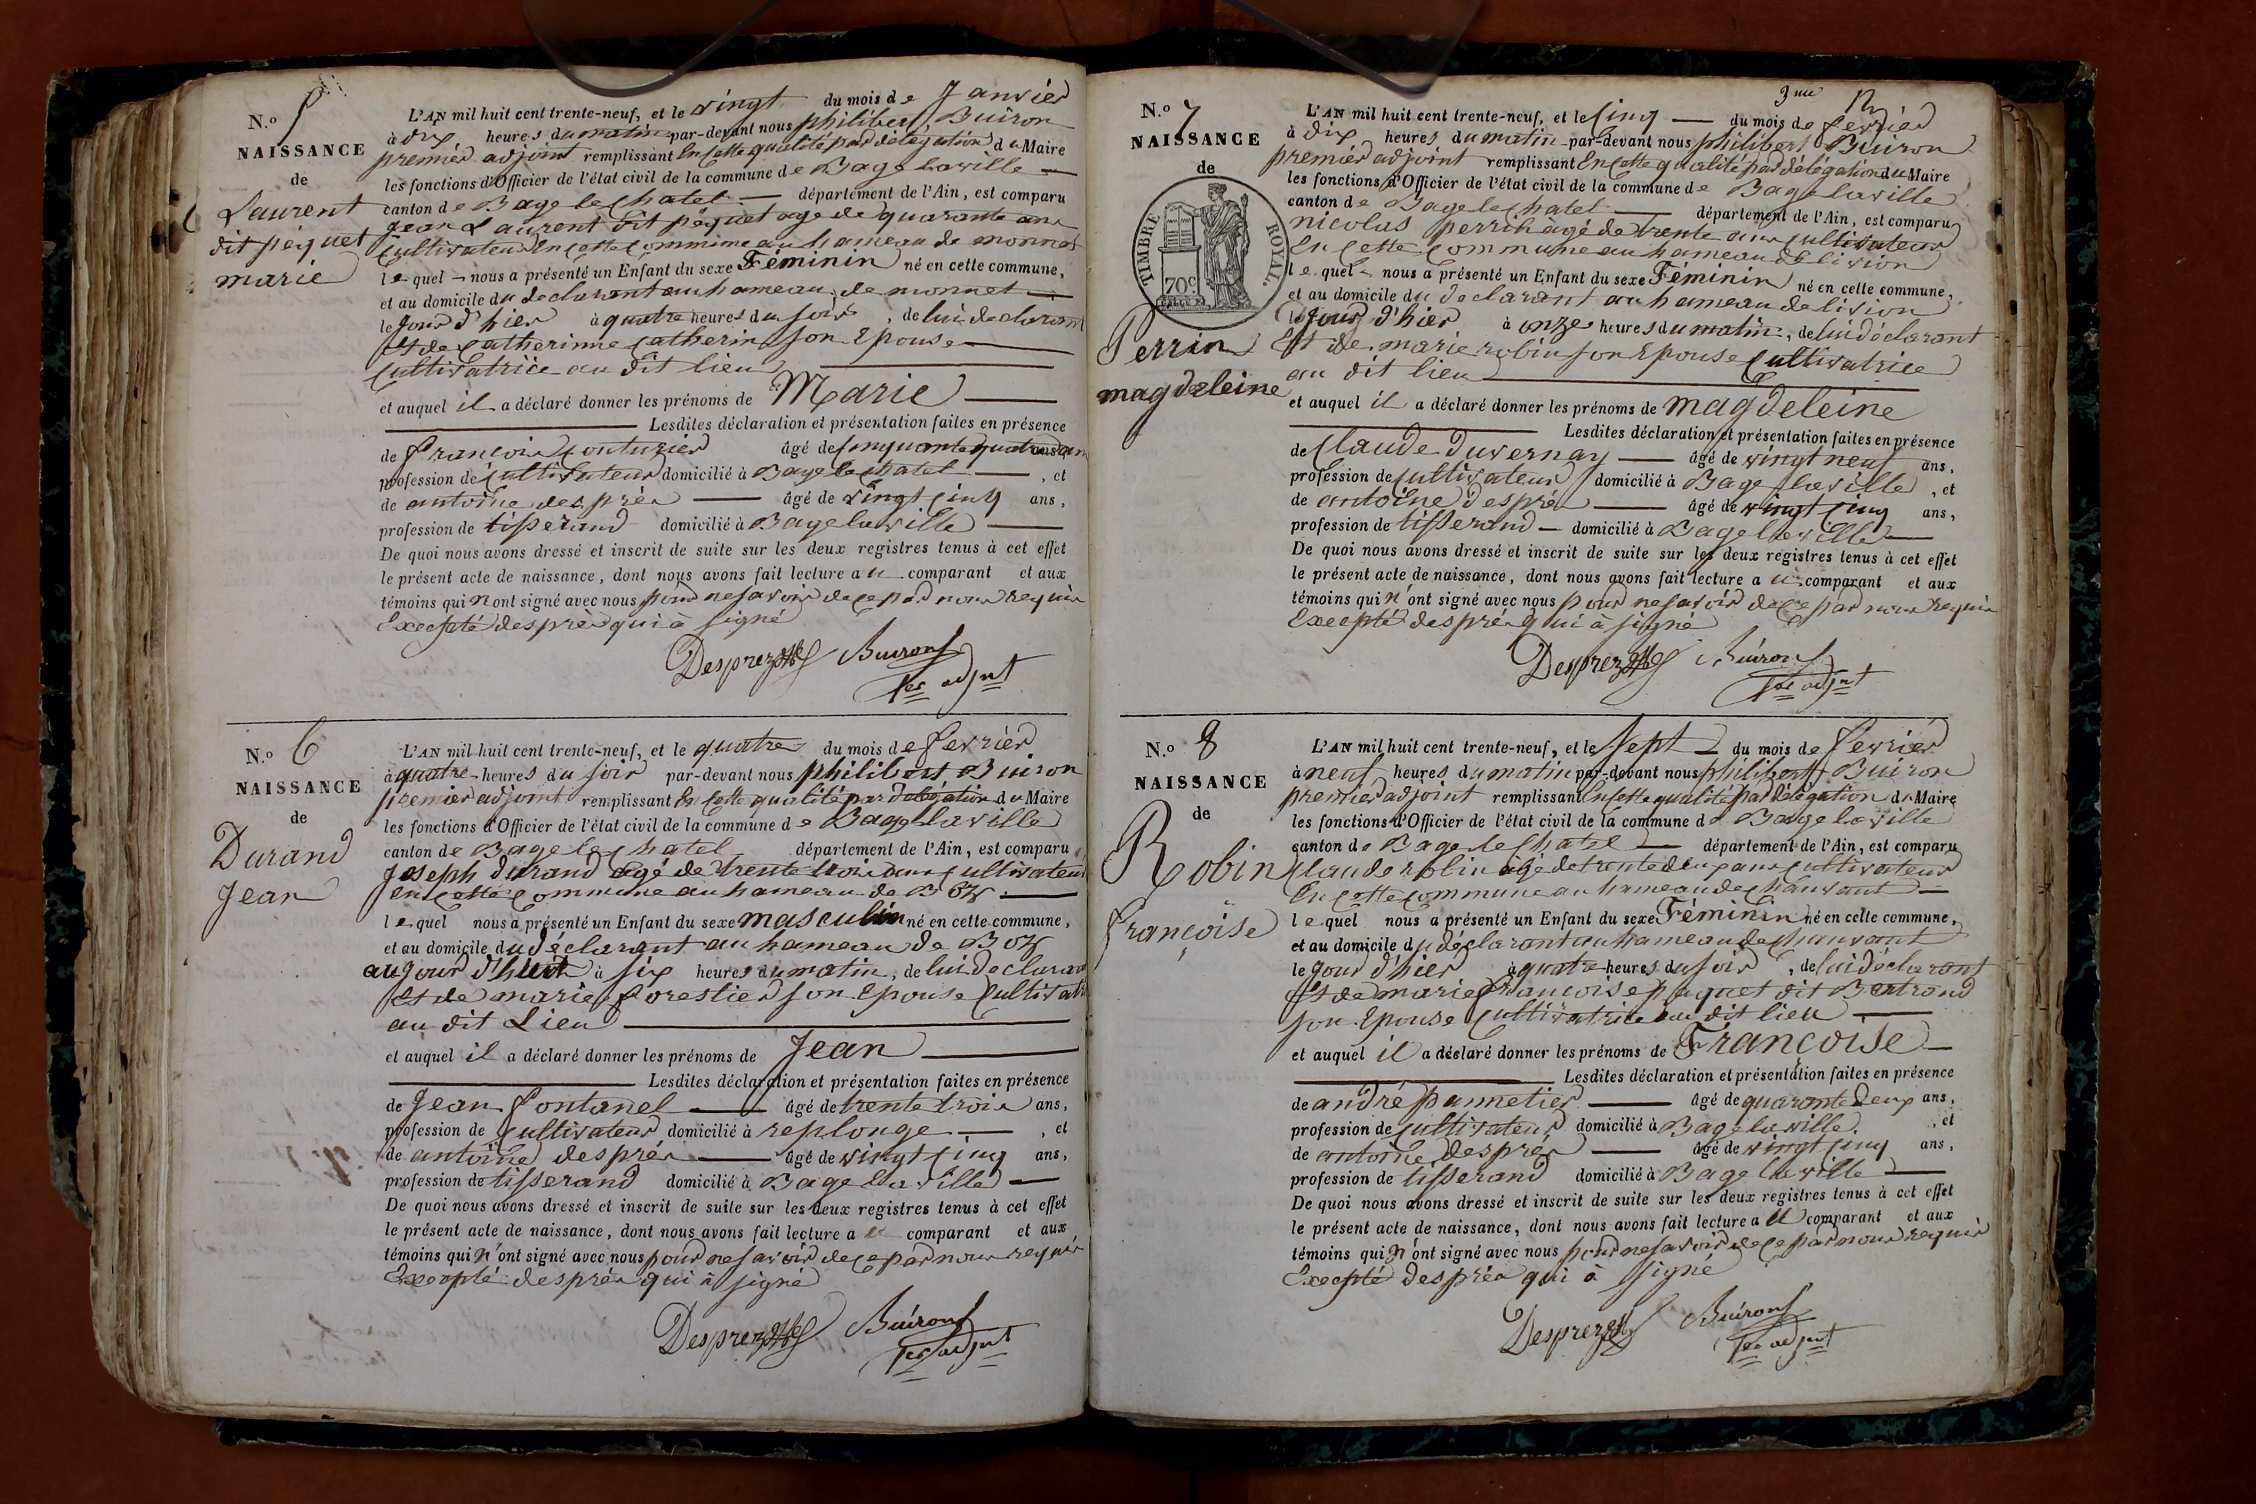 N.o 5
NAISSANCE
de
Laurent
dit péquet
marie
L'AN mil huit cent trente-neuf, et le vingt du mois de Janvier
à dix heures du matin par-devant nous philibert Buiron
premier adjoint remplissant en cette qualité par délégation du Maire
les fonctions d'Officier de l'état civil de la commune de Bage laville
canton de Bage le chatel département de l'Ain, est comparu
Jean Laurent dit péquet age de quarante ans
cultivateur en cette commune au hameau de monnet
lequel nous a présenté un Enfant du sexe Féminin né en cette commune,
et au domicile du declarant au hameau de monnet
le jour d'hier à quatre heures du soir, de lui declarant
et de catherinne catherin son epouse
cultivatrice au dit lieu
et auquel il a déclaré donner les prénoms de Marie
Lesdites déclaration et présentation faites en présence
de francois couturier âgé de cinquante quatre ans
profession de cultivateur domicilié à Bage le chatel, et
de antoine després âgé de vingt cinq ans,
profession de tisserand domicilié à Bage laville
De quoi nous avons dressé et inscrit de suite sur les deux registres tenus à cet effet
le présent acte de naissance, dont nous avons fait lecture au comparant et aux
témoins qui n'ont signé avec nous pour ne savoir de ce par nous requis
Excepté desprès qui à signé
Desprez Buiron
1er adjnt
N.o 6
NAISSANCE
de
Durand
Jean
L'AN mil huit cent trente-neuf, et le quatre du mois de fevrier
à quatre heures du soir par-devant nous philibert Buiron
premier adjoint remplissant en cette qualité par délégation du Maire
les fonctions d'Officier de l'état civil de la commune de Bage laville
canton de Bage le chatel département de l'Ain, est comparu
Joseph durand âgé de trente trois ans cultivateur
en cette commune au hameau de Boz
lequel nous a présenté un Enfant du sexe masculin né en cette commune,
et au domicile du déclarant au hameau de Boz
aujour d'huit à six heures du matin, de lui declarant
et de marie forestier son epouse cultivatrice
au dit Lieu
et auquel il a déclaré donner les prénoms de Jean
Lesdites déclaration et présentation faites en présence
de Jean fontanel âgé de trente trois ans,
profession de cultivateur domicilié à replonge, et
de antoine després âgé de vingt cinq ans,
profession de tisserand domicilié à Bage laville
De quoi nous avons dressé et inscrit de suite sur les deux registres tenus à cet effet
le présent acte de naissance, dont nous avons fait lecture au comparant et aux
témoins qui n'ont signé avec nous pour ne savoir de ce par nous requis
Excepté després qui à signé
Desprez Buiron
1er adjnt
3me
N.o 7
NAISSANCE
de
TIMBRE ROYAL.
70c.
Perrin
magdeleine
L'AN mil huit cent trente-neuf, et le cinq du mois de fevrier
à dix heures du matin par-devant nous philibert Buiron
premier adjoint remplissant en cette qualité par délégation du Maire
les fonctions d'Officier de l'état civil de la commune de Bage laville
canton de Bage le chatel département de l'Ain, est comparu
nicolas perrin agé de trente ans cultivateur
en cette commune au hameau de livion
lequel nous a présenté un Enfant du sexe Féminin né en cette commune,
et au domicile du declarant au hameau de livion
le jour d'hier à onze heures du matin, de lui déclarant
et de marie robin son epouse cultivatrice
au dit lieu
et auquel il a déclaré donner les prénoms de magdeleine
Lesdites déclaration et présentation faites en présence
de claude duvernay âgé de vingt neuf ans,
profession de cultivateur domicilié à Bage laville, et
de antoine després âgé de vingt cinq ans,
profession de tisserand domicilié à Bage laville
De quoi nous avons dressé et inscrit de suite sur les deux registres tenus à cet effet
le présent acte de naissance, dont nous avons fait lecture au comparant et aux
témoins qui n'ont signé avec nous pour ne savoir de ce par nous requis
Excepté després qui à signé
Desprez Buiron
1er adjnt
N.o 8
NAISSANCE
de
Robin
françoise
L'AN mil huit cent trente-neuf, et le sept du mois de fevrier
à neuf heures du matin par-devant nous philibert Buiron
premier adjoint remplissant en cette qualité par délégation du Maire
les fonctions d'Officier de l'état civil de la commune de Bage laville
canton de Bage le chatel département de l'Ain, est comparu
claude robin âgé de trente deux ans cultivateur
en cette commune au hameau de chanvant
lequel nous a présenté un Enfant du sexe Féminin né en cette commune,
et au domicile du déclarant au hameau de chanvant
le jour d'hier à quatre heures du soir, de lui déclarant
et de marie francoise paquet dit Bertrand
son epouse cultivatrice au dit lieu
et auquel il a déclaré donner les prénoms de Françoise
Lesdites déclaration et présentation faites en présence
de andré pannetier âgé de quarante deux ans,
profession de cultivateur domicilié à Bage laville, et
de antoine després âgé de vingt cinq ans,
profession de tisserand domicilié à Bage laville
De quoi nous avons dressé et inscrit de suite sur les deux registres tenus à cet effet
le présent acte de naissance, dont nous avons fait lecture au comparant et aux
témoins qui n'ont signé avec nous pour ne savoir de ce par nous requis
Excepté després qui à signé
Desprez Buiron
1er adjnt